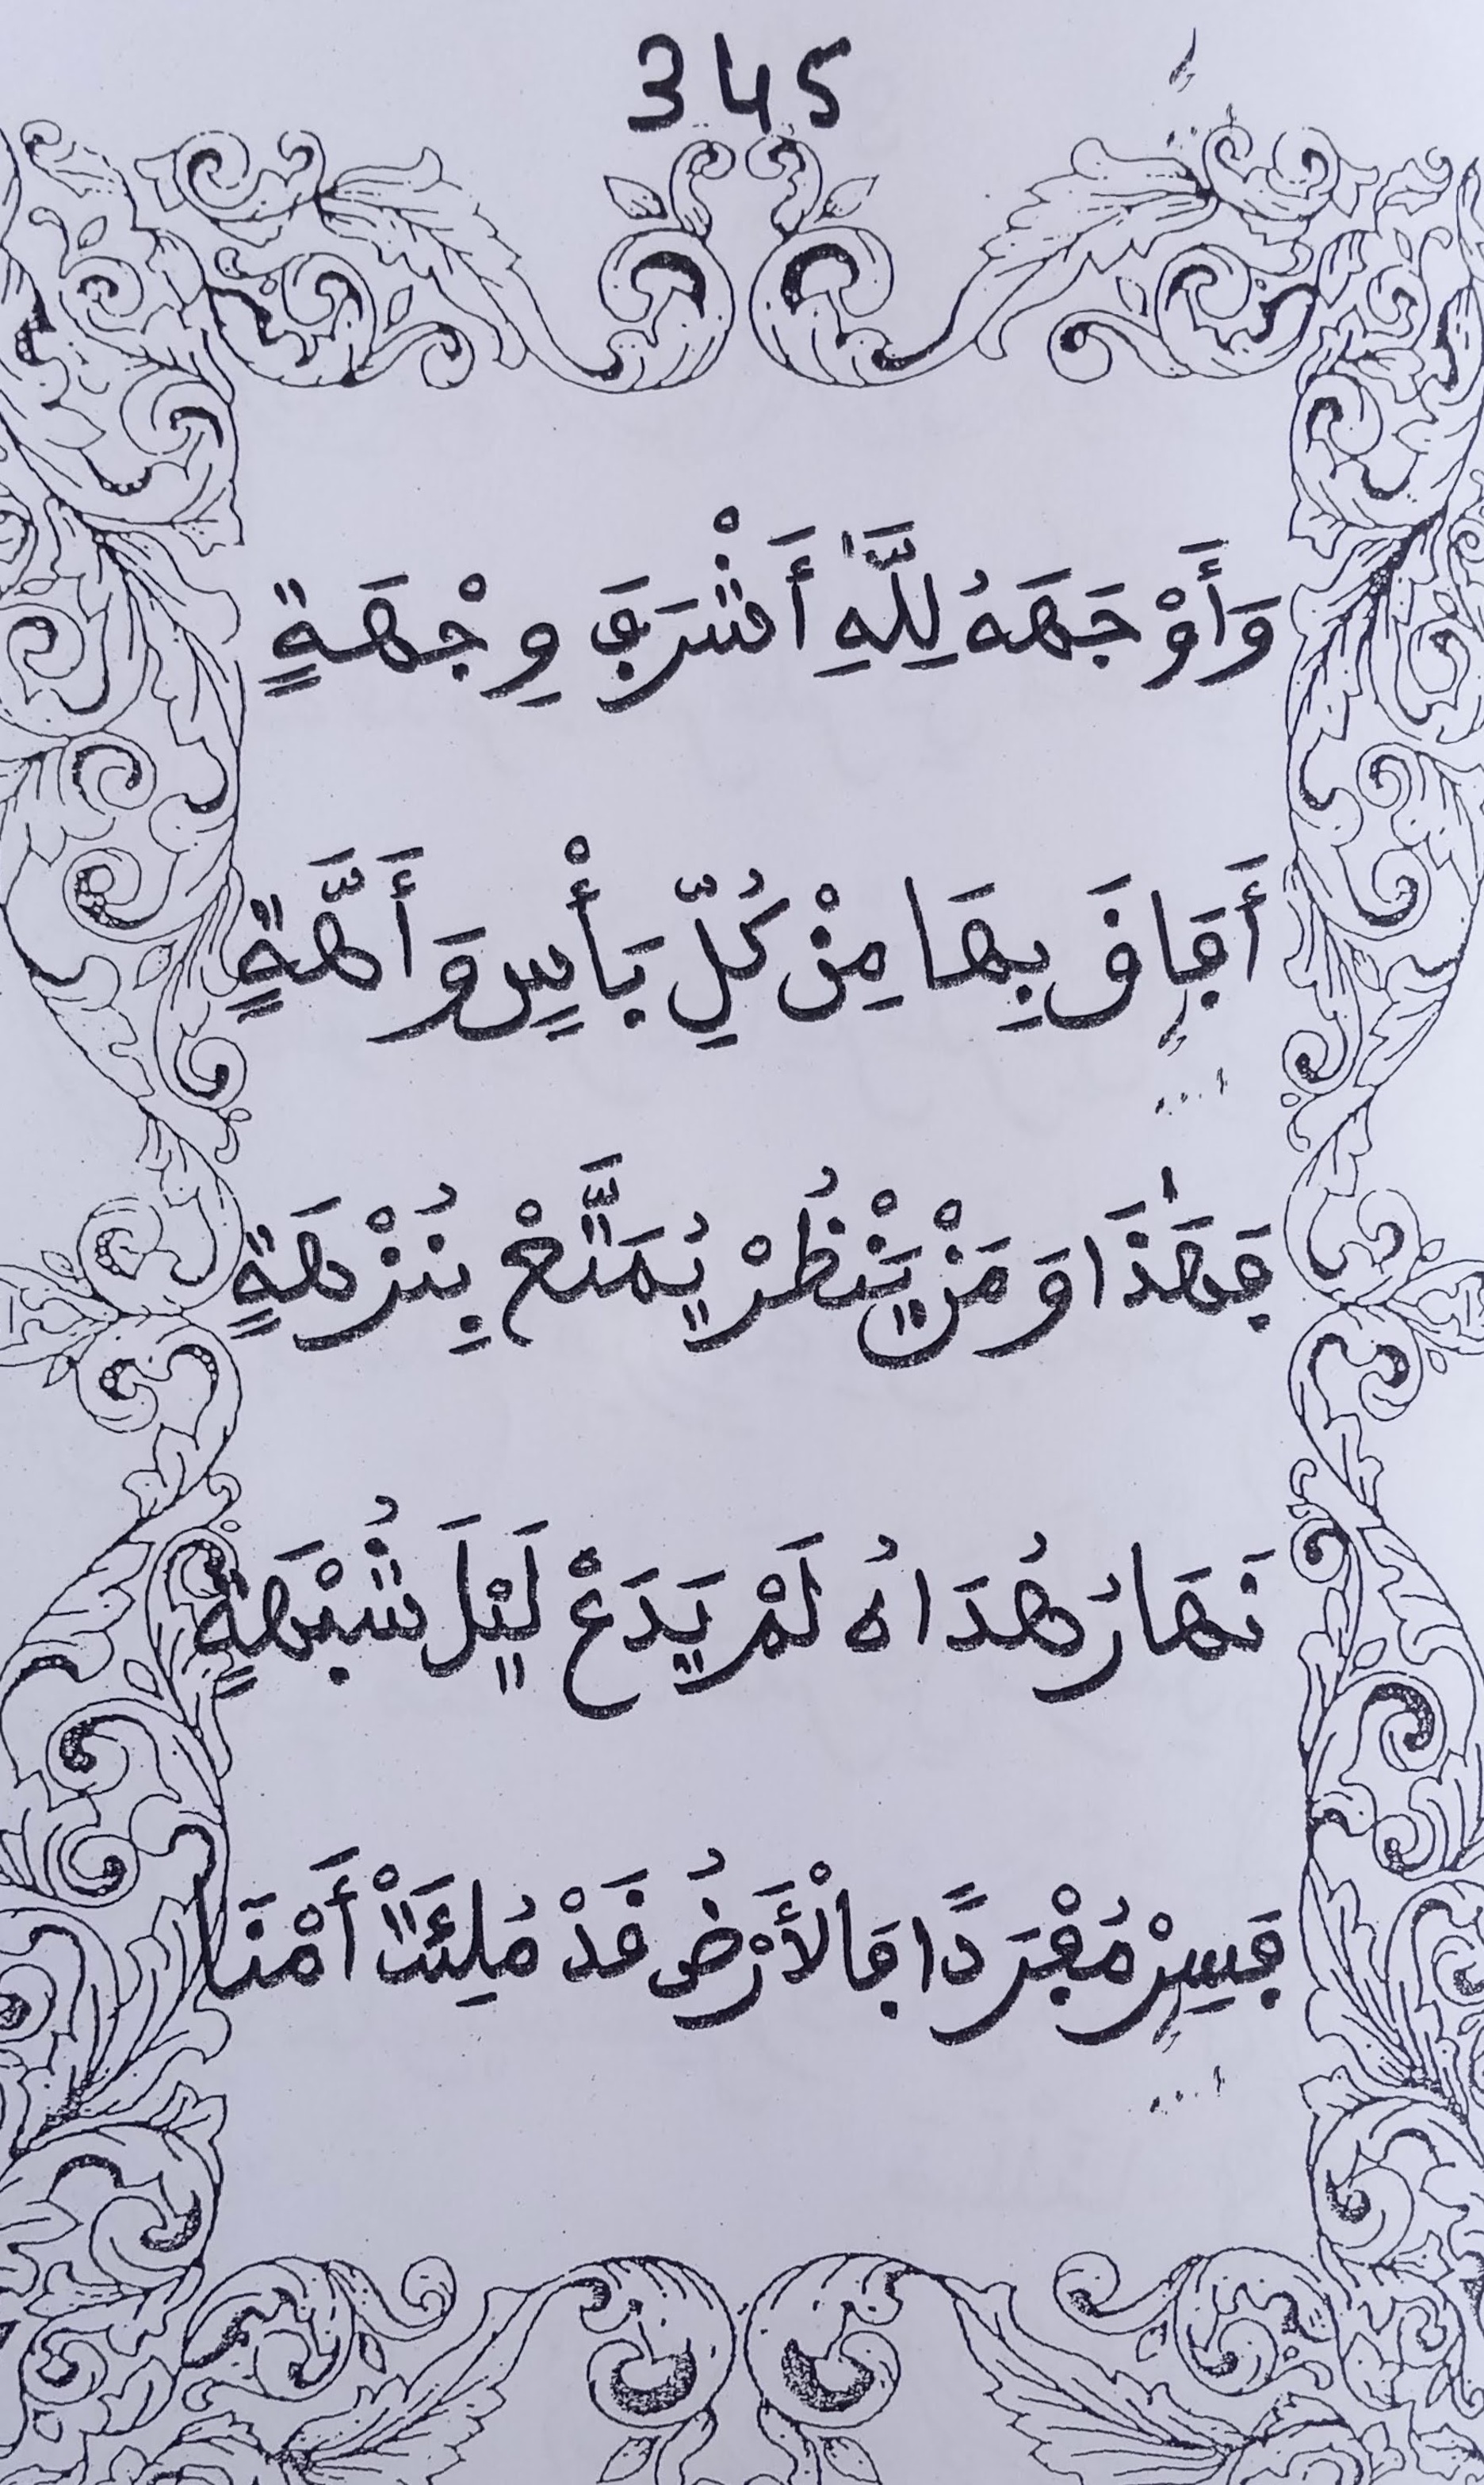 345
وَأَوْجَهَهُ لِلَّهِ أَشْرَفَ وِجْهَةٍ
أَفَاقَ بِهَا مِنْ كُلِّ بَأْسٍ وَأَهَّةٍ
فَهَٰذَا وَمَنْ يَنْظُرْ يُمَتَّعْ بِنُزْهَةٍ
نَهَارُ هُدَاهُ لَمْ يَدَعْ لَيْلَ شُبْهَةٍ
فَسِرْ مُفْرَدًا فَالْأَرْضُ قَدْ مُلِئَتْ أَمْنَا